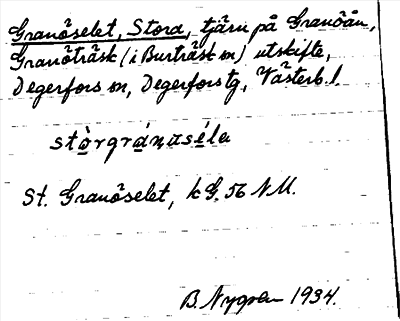 Granöselet, Stora, tjärn på Granöån,
Granöträsk (i Burträsk sn) utskifte,
Degerfors sn, Degerfors tg, Västerb. l.
stòrgránusélɐ
St. Granöselet, k G. 56 NU.
B. Nygren 1934.